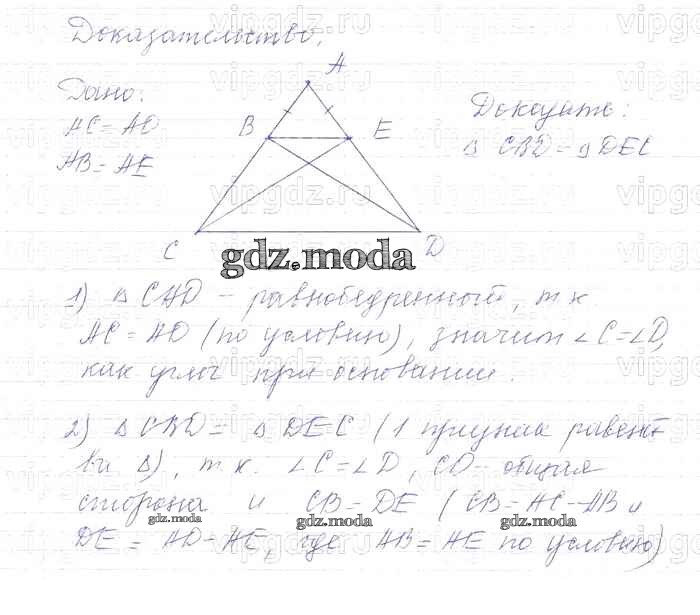 Доказательство.
A
Дано:
AC = AD
AB = AE
B
E
Доказать:
Δ CBD = Δ DEC
C
D
gdz.moda
1) Δ CAD - равнобедренный, т.к.
AC = AD (по условию), значит ∠C=∠D,
как углы при основании.
2) Δ CBD = Δ DEC (1 признак равенст-
ва Δ), т.к. ∠C=∠D, CD - общая
сторона и CB = DE (CB = AC - AB и
gdz.moda gdz.moda
DE = AD - AE, где AB = AE по условию)